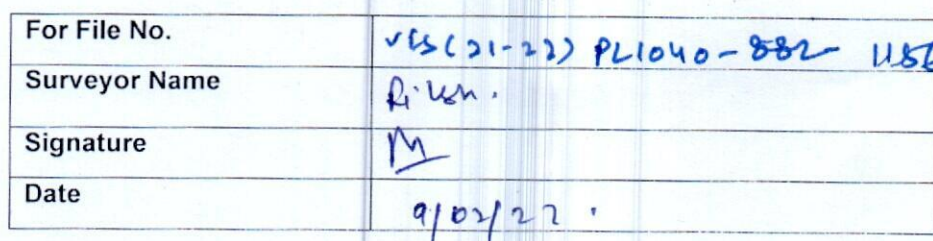 For File No. VIS(21-22) PL1040-882- 1156
Surveyor Name
Signature
Date 9/02/22.